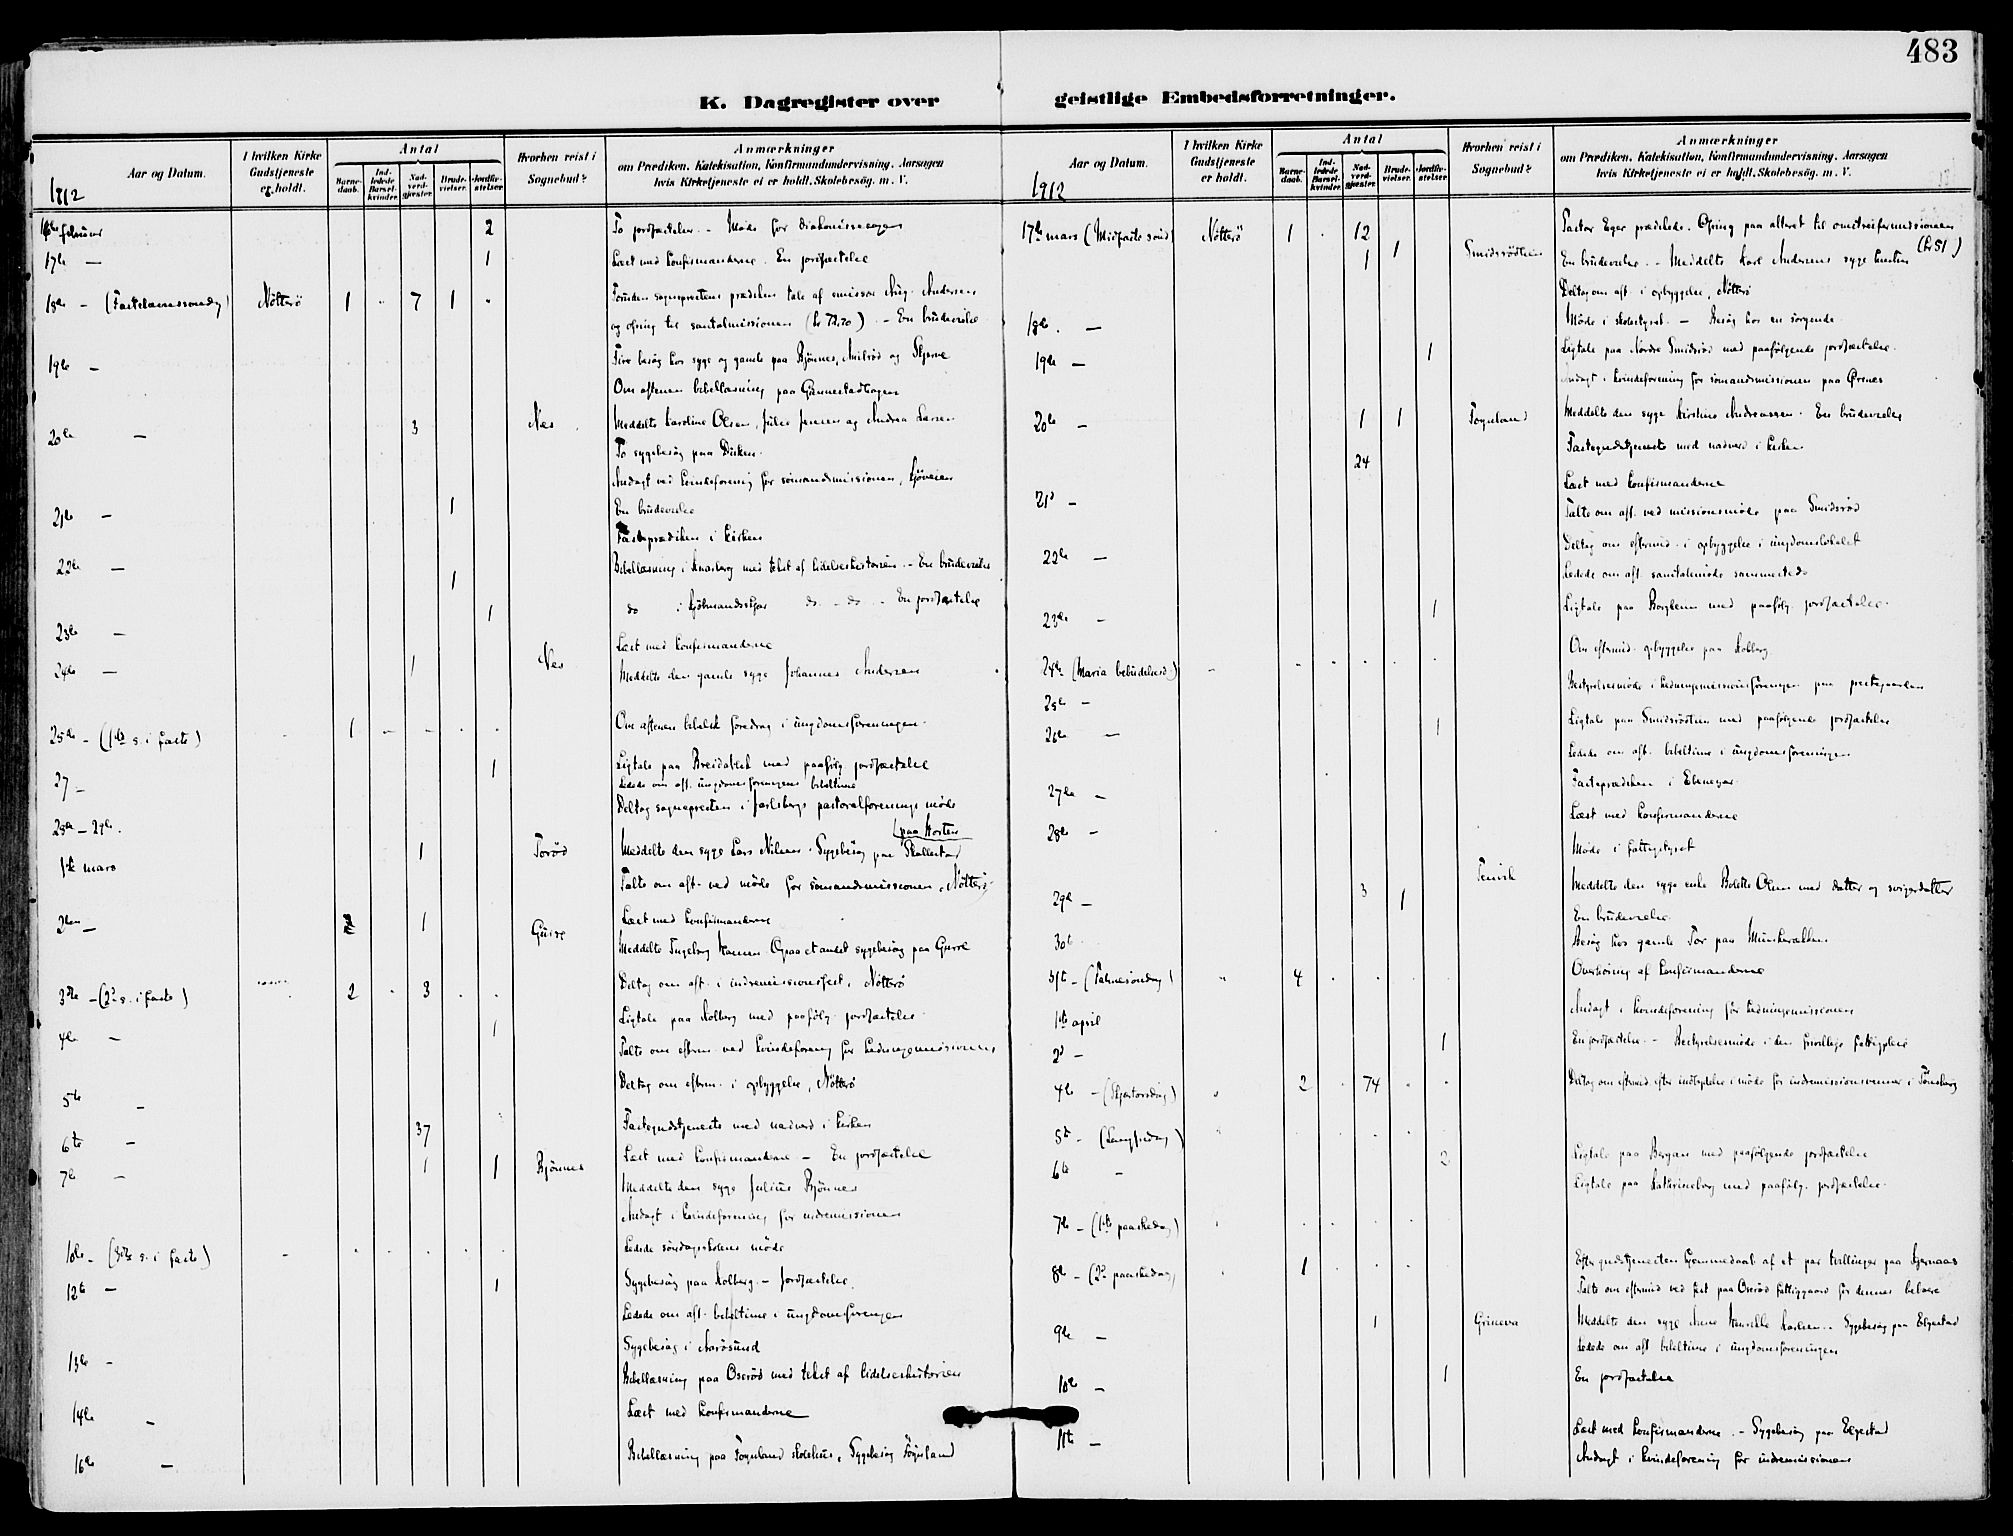 483
K. Dagregister over geistlige Embedsforretninger.
Aar og Datum.
I hvilken Kirke Gudstjeneste er holdt.
Antal
Barnedaab.
Indledede Barselkvinder.
Nadverdgjæster.
Brudevielser.
Jordfæstelser.
Hvorhen reist i Sognebud?
Anmærkninger
om Prædiken, Katekisation, Konfirmandundervisning, Aarsagen
hvis Kirketjeneste ei er holdt, Skolebesøg, m. V.
1912
16de februar 2 To jordfæstelser. - Møde for diakonissesagen
17de — 1 Læst med konfirmanderne. En jordfæstelse
18de - (Fastelavnssøndag) Nøtterø 1 " 7 1 " Foruden sogneprestens prædiken tale af emissær Aug. Andersen
og ofring til santalmissionen (kr 72.70) - En brudevielse
19de - Fire besøg hos syge og gamle paa Bjønnes, og
Om aftenen bibellæsning paa Gunnestadhagen
20de — 3 Næs Meddelte Karoline Olsen, Julie Jensen og Andrea Larsen
To sygebesøg paa
Andagt ved kvindeforening for sømandsmissionen,
21de - 1 En brudevielse
Fasteprædiken i kirken
22de — 1 Bibellæsning i med tekst af lidelseshistorien. - En brudevielse
1 do i do - do - En jordfæstelse
23de — Læst med konfirmanderne
24de — 1 Nes Meddelte den gamle syge Johannes Andersen
25de - (1ste s. i faste) 1 Om aftenen bibelsk foredrag i ungdomsforeningen.
27 - 1 Ligtale paa Breidablik med paafølg. jordfæstelse
Ledede om aft. ungdomsforeningens bibeltime
28de - 29de. Deltog sognepresten i Jarlsbergs pastoralforenings møde
(paa Horten
1ste mars 1 Torød Meddelte den syge Lars Nilsen. Sygebesøg paa Skallestad
Talte om aft. ved møde for sømandsmissionen, Nøtterø
2den - 1 Læst med konfirmanderne
Meddelte Ingeborg Hansen. Ogsaa et andet sygebesøg paa
3die - (2den s. i faste) 2 " 3 . . Deltog om aft. i indremissionsfest, Nøtterø
4de - 1 Ligtale paa Kolberg med paafølg. jordfæstelse
Talte om efterm. ved kvindeforening for hedningemissionen
5te - Deltog om efterm. i opbyggelse, Nøtterø
6te - 37 Fastegudstjeneste med nadverd i kirken
7de - 1 1 Bjønnes Læst med konfirmanderne - En jordfæstelse
Meddelte den syge Julius Bjønnes
Andagt i kvindeforening for indremissionen
10de - (3die s. i faste) Ledede søndagsskolens møde
12te - 1 Sygebesøg paa Kolberg. - Jordfæstelse.
Ledede om aft. bibeltime i ungdomsforeningen
13de - Sygebesøg i Aarøsund
Bibellæsning paa Oserød med tekst af lidelseshistorien
14de - Læst med konfirmanderne
16de — Bibellæsning paa Føynland skolehus, Sygebesøg Føynland
Aar og Datum.
I hvilken Kirke Gudstjeneste er holdt.
Antal
Barnedaab.
Indledede Barselkvinder.
Nadverdgjæster.
Brudevielser.
Jordfæstelser.
Hvorhen reist i Sognebud?
Anmærkninger
om Prædiken, Katekisation, Konfirmandundervisning, Aarsagen
hvis Kirketjeneste ei er holdt, Skolebesøg, m. V.
1912
17de mars (Midfaste sønd) Nøtterø 1 . 12 Pastor Eger prædikede. Ofring paa alteret til omstreifermissionen
(kr 51)
1 1 Smidsrødtein En brudevielse. - Meddelte Karl Andersens syge hustru
Deltog om aft. i opbyggelse, Nøtterø
18de. — Møde i skolestyret. - Besøg hos en sørgende
19de — 1 Ligtale paa Nordre Smidsrød med paafølgende jordfæstelse.
Andagt i kvindeforening for sømandsmissionen paa Ørsnes
20de - 1 1 Føynland Meddelte den syge Kirstine Andreassen. En brudevielse
24 Fastegudstjeneste med nadverd i kirken
21de - Læst med konfirmanderne
Talte om aft. ved missionsmøde paa Smidsrød
22de — Deltog om eftermid. i opbyggelse i ungdomslokalet
Ledede om aft. samtalemøde sammesteds
23de - 1 Ligtale paa Borgheim med paafølg. jordfæstelse.
Om eftermid. opbyggelse paa Kolberg.
24de (Maria bebudelsesd)
25de - Bestyrelsesmøde i hedningemissionsforeningen paa prestegaarden
26de — 1 Ligtale paa Smidsrødtein med paafølgende jordfæstelse
Ledede om aft. bibeltime i ungdomsforeningen
27de - Fasteprædiken i Ebenezer.
28de - Læst med konfirmanderne
Møde i fattigstyret
29de - 3 1 Tenvik Meddelte den syge enke Bolette Olsen med datter og svigerdatter
En brudevielse
30te Besøg hos gamle Tor paa Munkerekken
Overhøring af konfirmanderne
31te - (Palmesøndag) " 4
1ste april Andagt i kvindeforening for hedningemissionen
2den - 1 En jordfæstelse. - Bestyrelsesmøde i den frivillige fattigpleie
4de - (Skjærtorsdag) " 2 . 74 . . Deltog om eftermid. efter indbydelse i møde for indremissionsvenner i Tønsberg
5te - (Langfredag)
6te - 2 Ligtale paa Bergan med paafølgende jordfæstelse
Ligtale paa Kathrineborg med paafølg. jordfæstelse.
7de - (1ste paaskedag)
8de - (2den paaskedag) 1 Efter gudstjenesten hjemmedaab af et par tvillinger paa
Talte om eftermid ved fest paa Oserød fattiggaard for dennes beboere
9de - 1 Grineva Meddelte den syge Anne Karlsen. - Sygebesøg paa Elgestad
Ledede om aft bibeltime i ungdomsforeningen
10de - 1 En jordfæstelse
11te - Læst med konfirmanderne. - Sygebesøg paa Elgestad
Andagt i kvindeforening for indremissionen